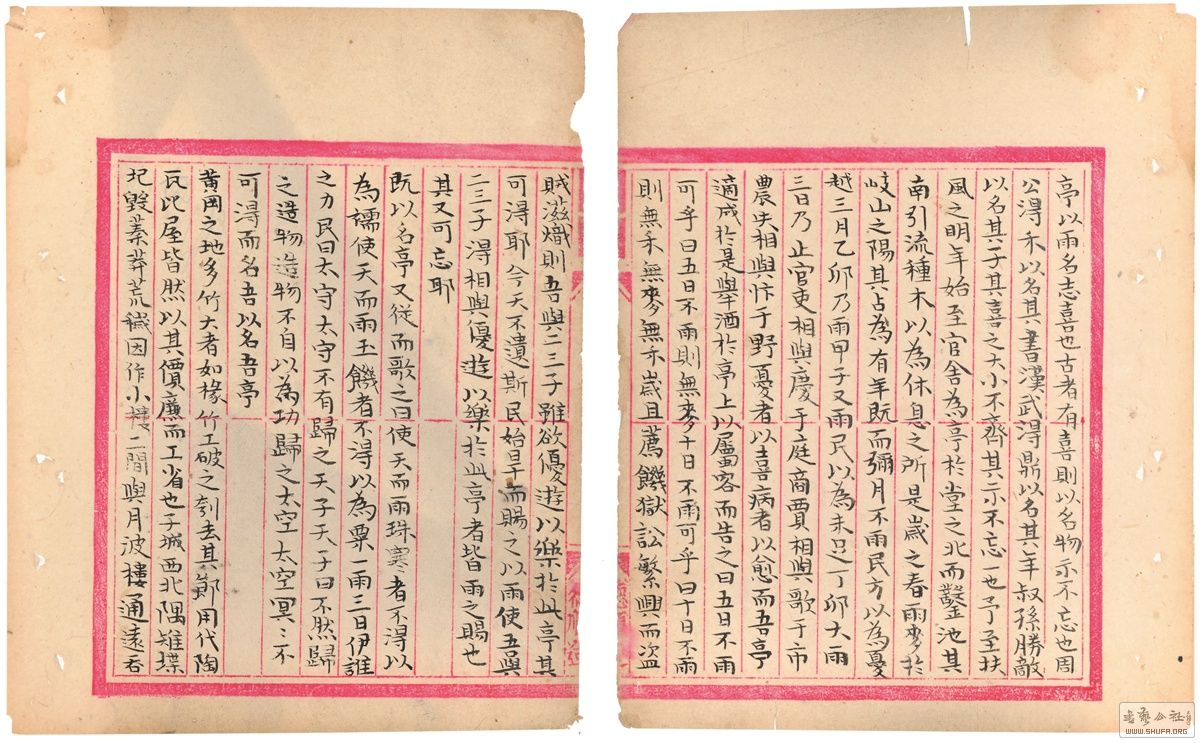 亭以雨名志喜也古者有喜則以名物示不忘也周
公得禾以名其書漢武得鼎以名其年叔孫勝敵
以名其子其喜之大小不齊其示不忘一也予至扶
風之明年始至官舍為亭於堂之北而鑿池其
南引流種木以為休息之所是歲之春雨麥於
岐山之陽其占為有年既而彌月不雨民方以為憂
越三月乙卯乃雨甲子又雨民以為未足丁卯大雨
三日乃止官吏相與慶于庭商賈相與歌于市
農夫相與忭于野憂者以喜病者以愈而吾亭
適成於是舉酒於亭上以屬客而告之曰五日不雨
可乎曰五日不雨則無麥十日不雨可乎曰十日不雨
則無禾無麥無禾歲且薦饑獄訟繁興而盜
賊滋熾則吾與二三子雖欲優遊以樂於此亭其
可得耶今天不遺斯民始旱而賜之以雨使吾與
二三子得相與優遊以樂於此亭者皆雨之賜也
其又可忘耶
既以名亭又從而歌之曰使天而雨珠寒者不得以
為襦使天而雨玉饑者不得以為粟一雨三日伊誰
之力民曰太守太守不有歸之天子天子曰不然歸
之造物造物不自以為功歸之太空太空冥:不
可得而名吾以名吾亭
黃岡之地多竹大者如椽竹工破之刳去其節用代陶
瓦比屋皆然以其價廉而工省也子城西北隅雉堞
圮毀蓁莽荒穢因作小樓二間與月波樓通遠吞
WWW.SHUFA.ORG